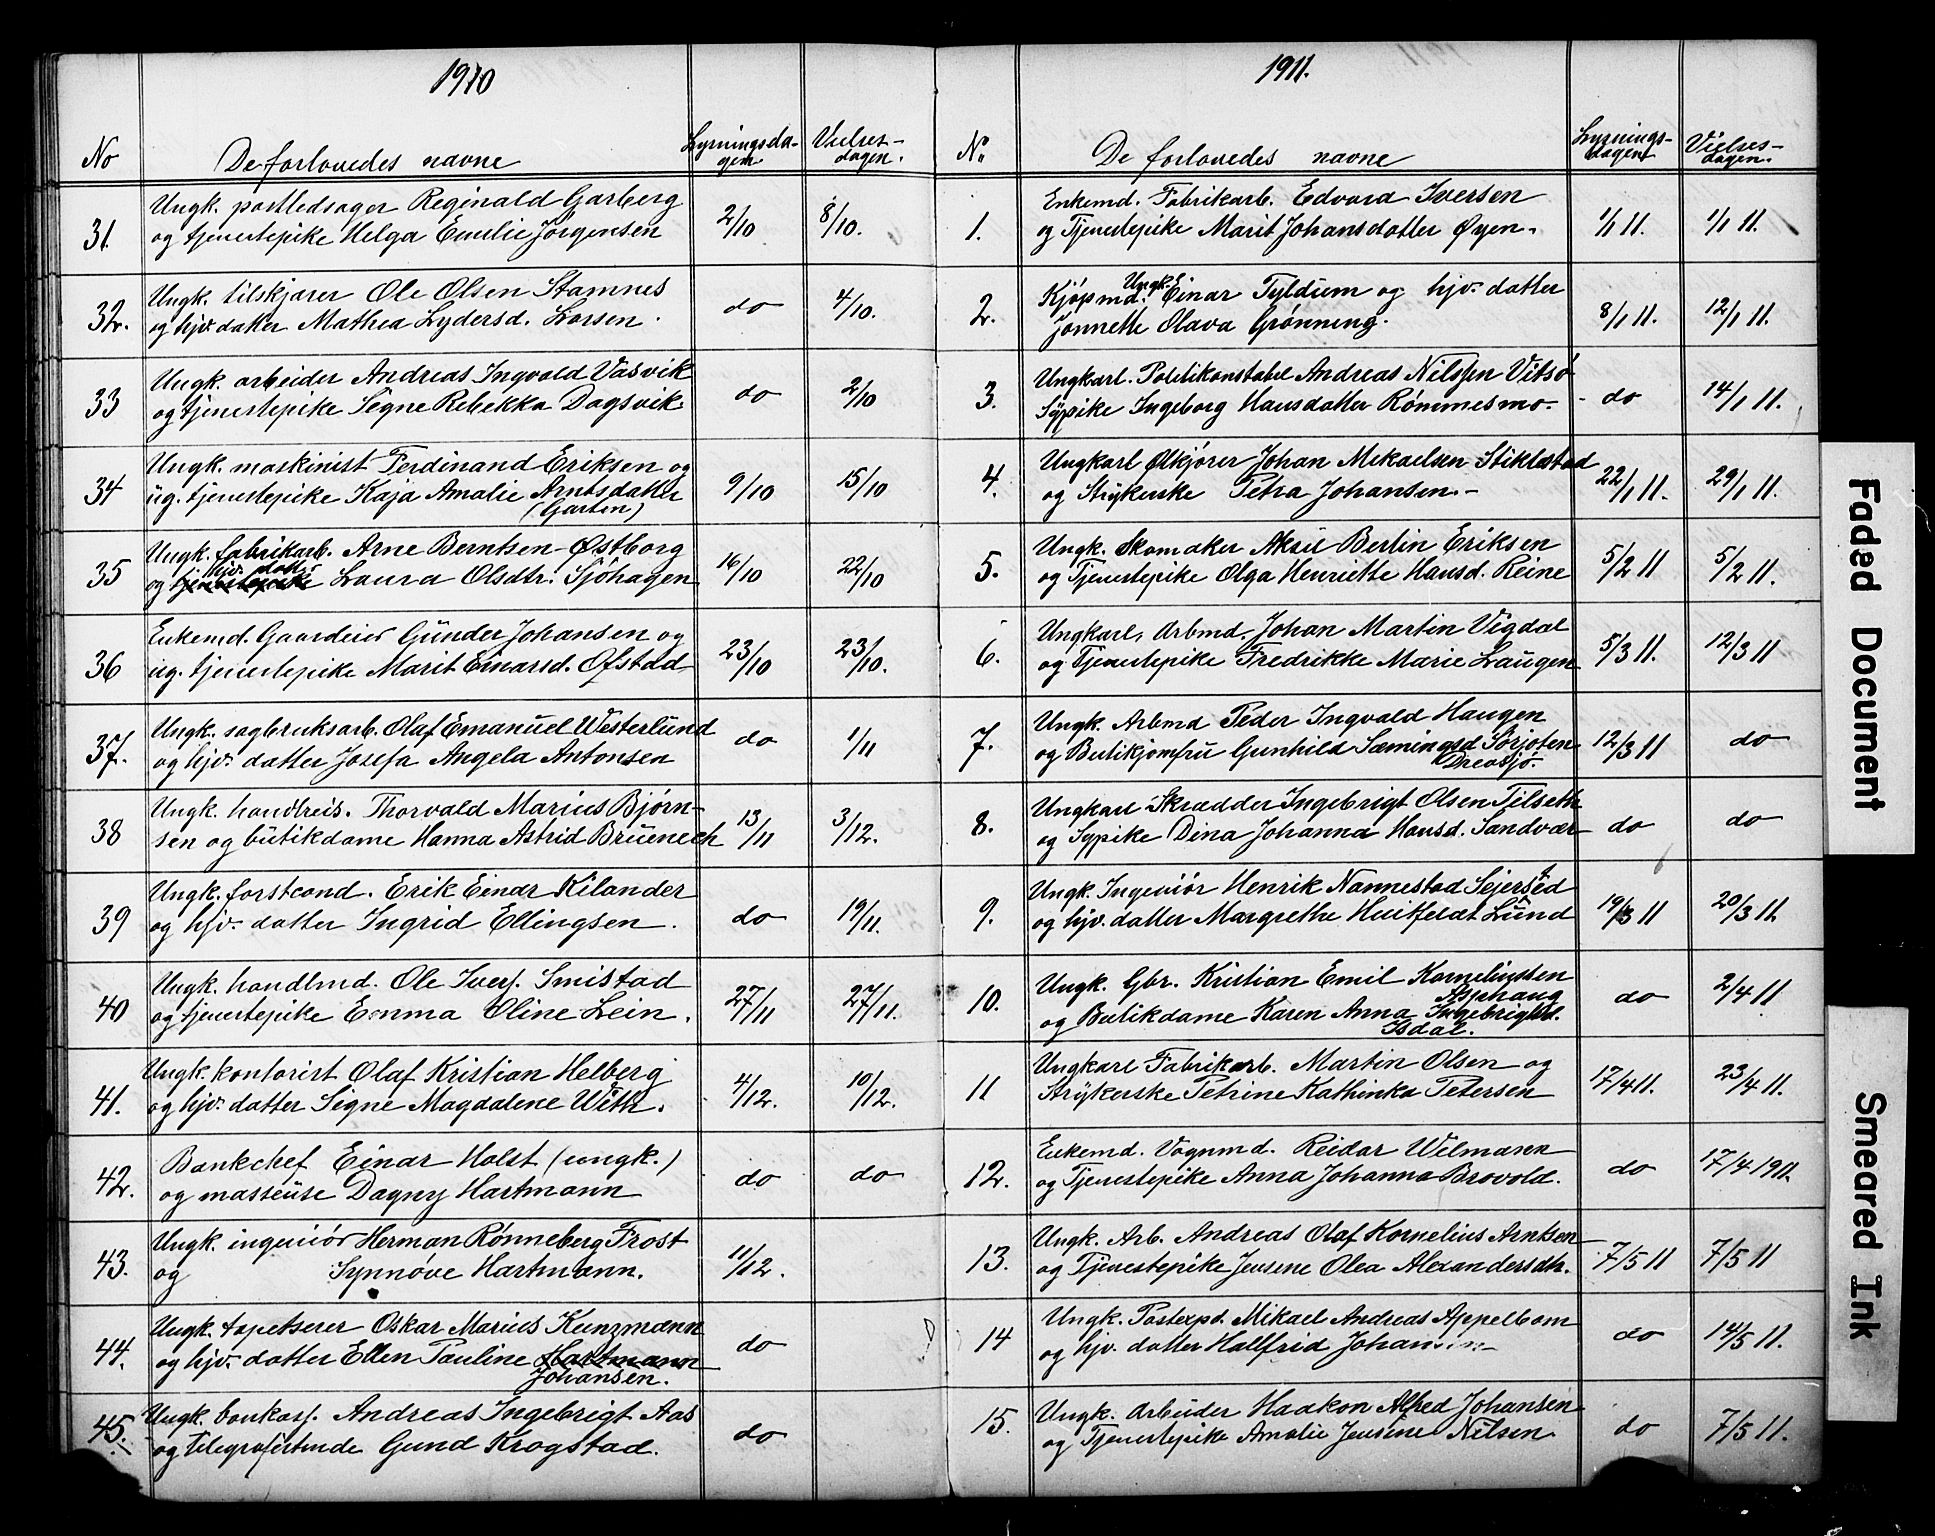 1910
No De forlovedes navne Lysningsda- Vielses-
gen dagen.
31. Ungk. postledsager Reginald Garberg 2/10 8/10.
og tjenestepike Helga Emilie Jörgensen
32. Ungk. tilskjærer Ole Olsen Stamnes do 4/10.
og hjv. datter Mathea Lydersd. Larsen.
33 Ungk. arbeider Andreas Ingvald Vasvik do 2/10
og tjenestepike Signe Rebekka Dagsvik
34 Ungk. maskinist Ferdinand Eriksen og 9/10 15/10
ug. tjenestepike Kaja Amalie Arntsdatter
(Garten)
35 Ungk. fabrikarb. Arne Berntsen-Østborg 16/10 22/10
hjv. datt.
og tjenestepike Laura Olsdtr. Sjöhagen
36 Enkemd. Gaardeier Günder Johansen og 23/10 23/10.
ug. tjenestepike Marit Einarsd. Ofstad
37. Ungk. sagbruksarb. Olaf Emanuel Westerlund do 1/11
og hjv. datter Josefa Angela Antonsen
38 Ungk. handlreis. Thorvald Marius Bjørn- 13/11 3/12.
sen og butikdame Hanna Astrid Bruenech
39 Ungk. forstcand. Erik Einar Kilander do 19/11.
og hjv. datter Ingrid Ellingsen.
40 Ungk. handlmd. Ole Ivers. Smistad 27/11 27/11.
og tjenestepike Emma Oline Lein.
41. Ungk. kontorist Olaf Kristian Helberg 4/12. 10/12.
og hjv. datter Signe Magdalene With.
42. Bankchef Einar Holst (ungk.) do do
og masseuse Dagny Hartmann
43. Ungk. ingeniör Herman Rønneberg Frost 11/12.
og Synnöve Hartmann.
44. Ungk. tapetserer Oskar Marius Kunzmann do
og hjv. datter Ellen Pauline Hartmann
Johansen.
45. Ungk. bankass. Andreas Ingebrigt Aas do
og telegrafistinde Gund Krogstad.
1911.
N. De forlovedes navne Lysnings- Vielses-
dagen dagen.
1. Enkemd. Fabrikarb. Edvard Iversen 1/1 11. 1/1 11.
og Tjenestepike Marit Johansdatter Øyen.
Ungk.
2. Kjøpmd. Einar Tyldum og hjv. datter 8/1 11. 12/1 11.
Jonnette Olava Grønning.
3. Ungkarl. Politikonstabel Andreas Nilssen Vitsø do 14/1 11.
Sypike Ingeborg Hansdatter Rømmesmo.
4. Ungkarl Ølkjører Johan Mikaelsen Stiklestad 22/1 11. 29/1 11.
og Strykerske Petra Johansen.-
5. Ungk. Skomaker Aksel Berlin Eriksen 5/2 11 5/2 11.
og Tjenestepike Olga Henriette Hansd. Reine
6. Ungkarl, Arbmd. Johan Martin Vigdal 5/3 11. 12/3 11
og Tjenestepike Fredrikke Marie Laugen
7. Ungk. Arbmd Peder Ingvald Haugen 12/3 11 do
og Butikjomfru Gunhild Sæmingsd Sörjoten
Drevsjö.
8. Ungkarl Skrædder Ingebrigt Olsen Tilseth do do
og Sypike Dina Johanna Hansd. Sandvær
9. Ungk. Ingeniör Henrik Nannestad Sejersted 19/3 11 20/3 11.
og hjv. datter Margrethe Huitfeldt Lund
10. Ungk. Gbr. Kristian Emil Korneliussen do 2/4 11
Asphaug
og Butikdame Karen Anna Ingebrigtsd.
Isdal.
11 Ungkarl Fabrikarb. Martin Olsen og 17/4 11. 23/4 11.
Strykerske Petrine Kathinka Petersen
12. Enkemd. Vognmd. Reidar Wilmann do 17/4 1911.
og Tjenestepike Anna Johanna Brovold.
13. Ungk. Arb. Andreas Olaf Kornelius Arntsen 7/5 11 7/5 11
og Tjenestepike Jensine Olea Alexandersdtr.
14 Ungk. Postexpd. Mikael Andreas Appelbom do 14/5 11.
og hjv. datter Hallfrid Johansen
15. Ungk. Arbeider Haakon Alfred Johansen do 7/5 11.
og Tjenestepike Amalie Jensine Nilsen
Faded Document
Smeared Ink